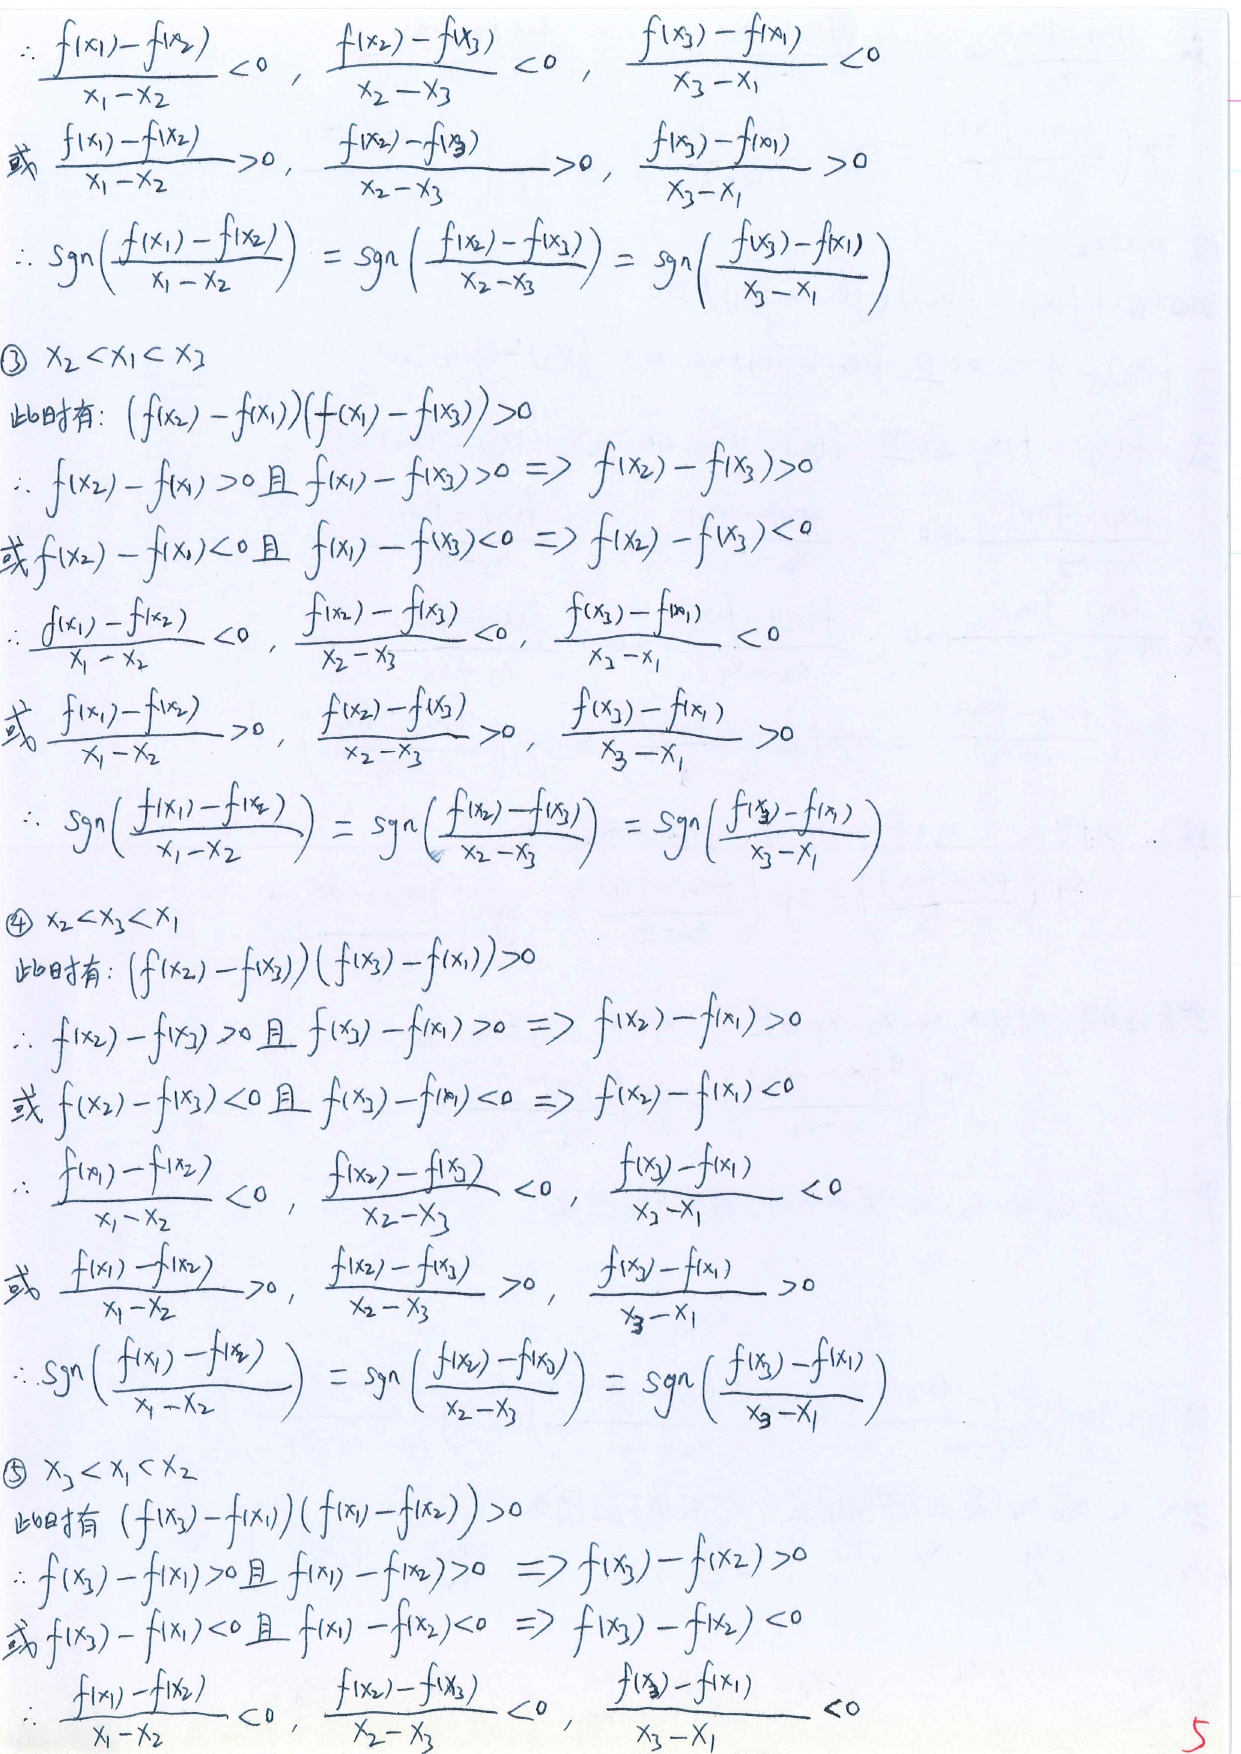 ∴ (f(x₁)−f(x₂))/(x₁−x₂) <0 , (f(x₂)−f(x₃))/(x₂−x₃) <0 , (f(x₃)−f(x₁))/(x₃−x₁) <0
或 (f(x₁)−f(x₂))/(x₁−x₂) >0 , (f(x₂)−f(x₃))/(x₂−x₃) >0 , (f(x₃)−f(x₁))/(x₃−x₁) >0
∴ sgn((f(x₁)−f(x₂))/(x₁−x₂)) = sgn((f(x₂)−f(x₃))/(x₂−x₃)) = sgn((f(x₃)−f(x₁))/(x₃−x₁))
③ x₂<x₁<x₃
此时有: (f(x₂)−f(x₁))(f(x₁)−f(x₃))>0
∴ f(x₂)−f(x₁)>0且f(x₁)−f(x₃)>0 => f(x₂)−f(x₃)>0
或f(x₂)−f(x₁)<0且 f(x₁)−f(x₃)<0 => f(x₂)−f(x₃)<0
∴ (f(x₁)−f(x₂))/(x₁−x₂) <0 , (f(x₂)−f(x₃))/(x₂−x₃) <0 , (f(x₃)−f(x₁))/(x₃−x₁) <0
或 (f(x₁)−f(x₂))/(x₁−x₂) >0 , (f(x₂)−f(x₃))/(x₂−x₃) >0 , (f(x₃)−f(x₁))/(x₃−x₁) >0
∴ sgn((f(x₁)−f(x₂))/(x₁−x₂)) = sgn((f(x₂)−f(x₃))/(x₂−x₃)) = sgn((f(x₃)−f(x₁))/(x₃−x₁))
④ x₂<x₃<x₁
此时有: (f(x₂)−f(x₃))(f(x₃)−f(x₁))>0
∴ f(x₂)−f(x₃)>0且 f(x₃)−f(x₁)>0 => f(x₂)−f(x₁)>0
或 f(x₂)−f(x₃)<0且 f(x₃)−f(x₁)<0 => f(x₂)−f(x₁)<0
∴ (f(x₁)−f(x₂))/(x₁−x₂) <0 , (f(x₂)−f(x₃))/(x₂−x₃) <0 , (f(x₃)−f(x₁))/(x₃−x₁) <0
或 (f(x₁)−f(x₂))/(x₁−x₂) >0 , (f(x₂)−f(x₃))/(x₂−x₃) >0 , (f(x₃)−f(x₁))/(x₃−x₁) >0
∴ sgn((f(x₁)−f(x₂))/(x₁−x₂)) = sgn((f(x₂)−f(x₃))/(x₂−x₃)) = sgn((f(x₃)−f(x₁))/(x₃−x₁))
⑤ x₃<x₁<x₂
此时有 (f(x₃)−f(x₁))(f(x₁)−f(x₂))>0
∴ f(x₃)−f(x₁)>0且 f(x₁)−f(x₂)>0 => f(x₃)−f(x₂)>0
或f(x₃)−f(x₁)<0且 f(x₁)−f(x₂)<0 => f(x₃)−f(x₂)<0
∴ (f(x₁)−f(x₂))/(x₁−x₂) <0 , (f(x₂)−f(x₃))/(x₂−x₃) <0 , (f(x₃)−f(x₁))/(x₃−x₁) <0
5